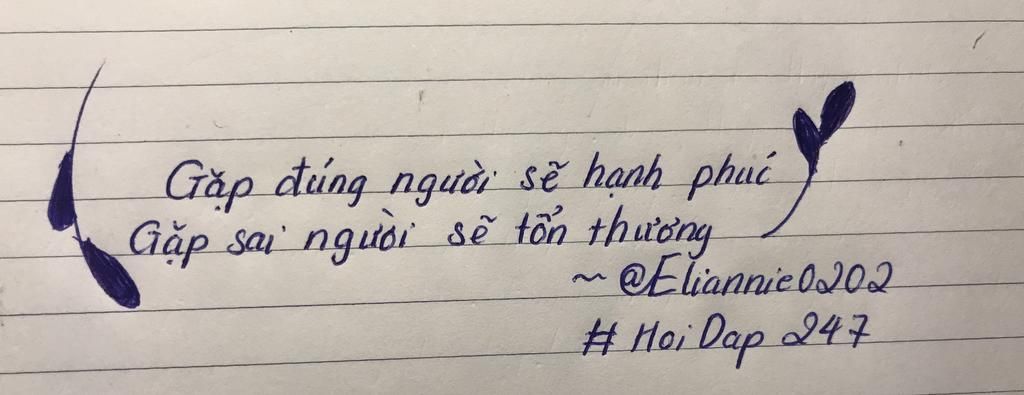 Gặp đúng người sẽ hạnh phúc
Gặp sai người sẽ tổn thương
~ @Eliannie0202
# Hoi Dap 247